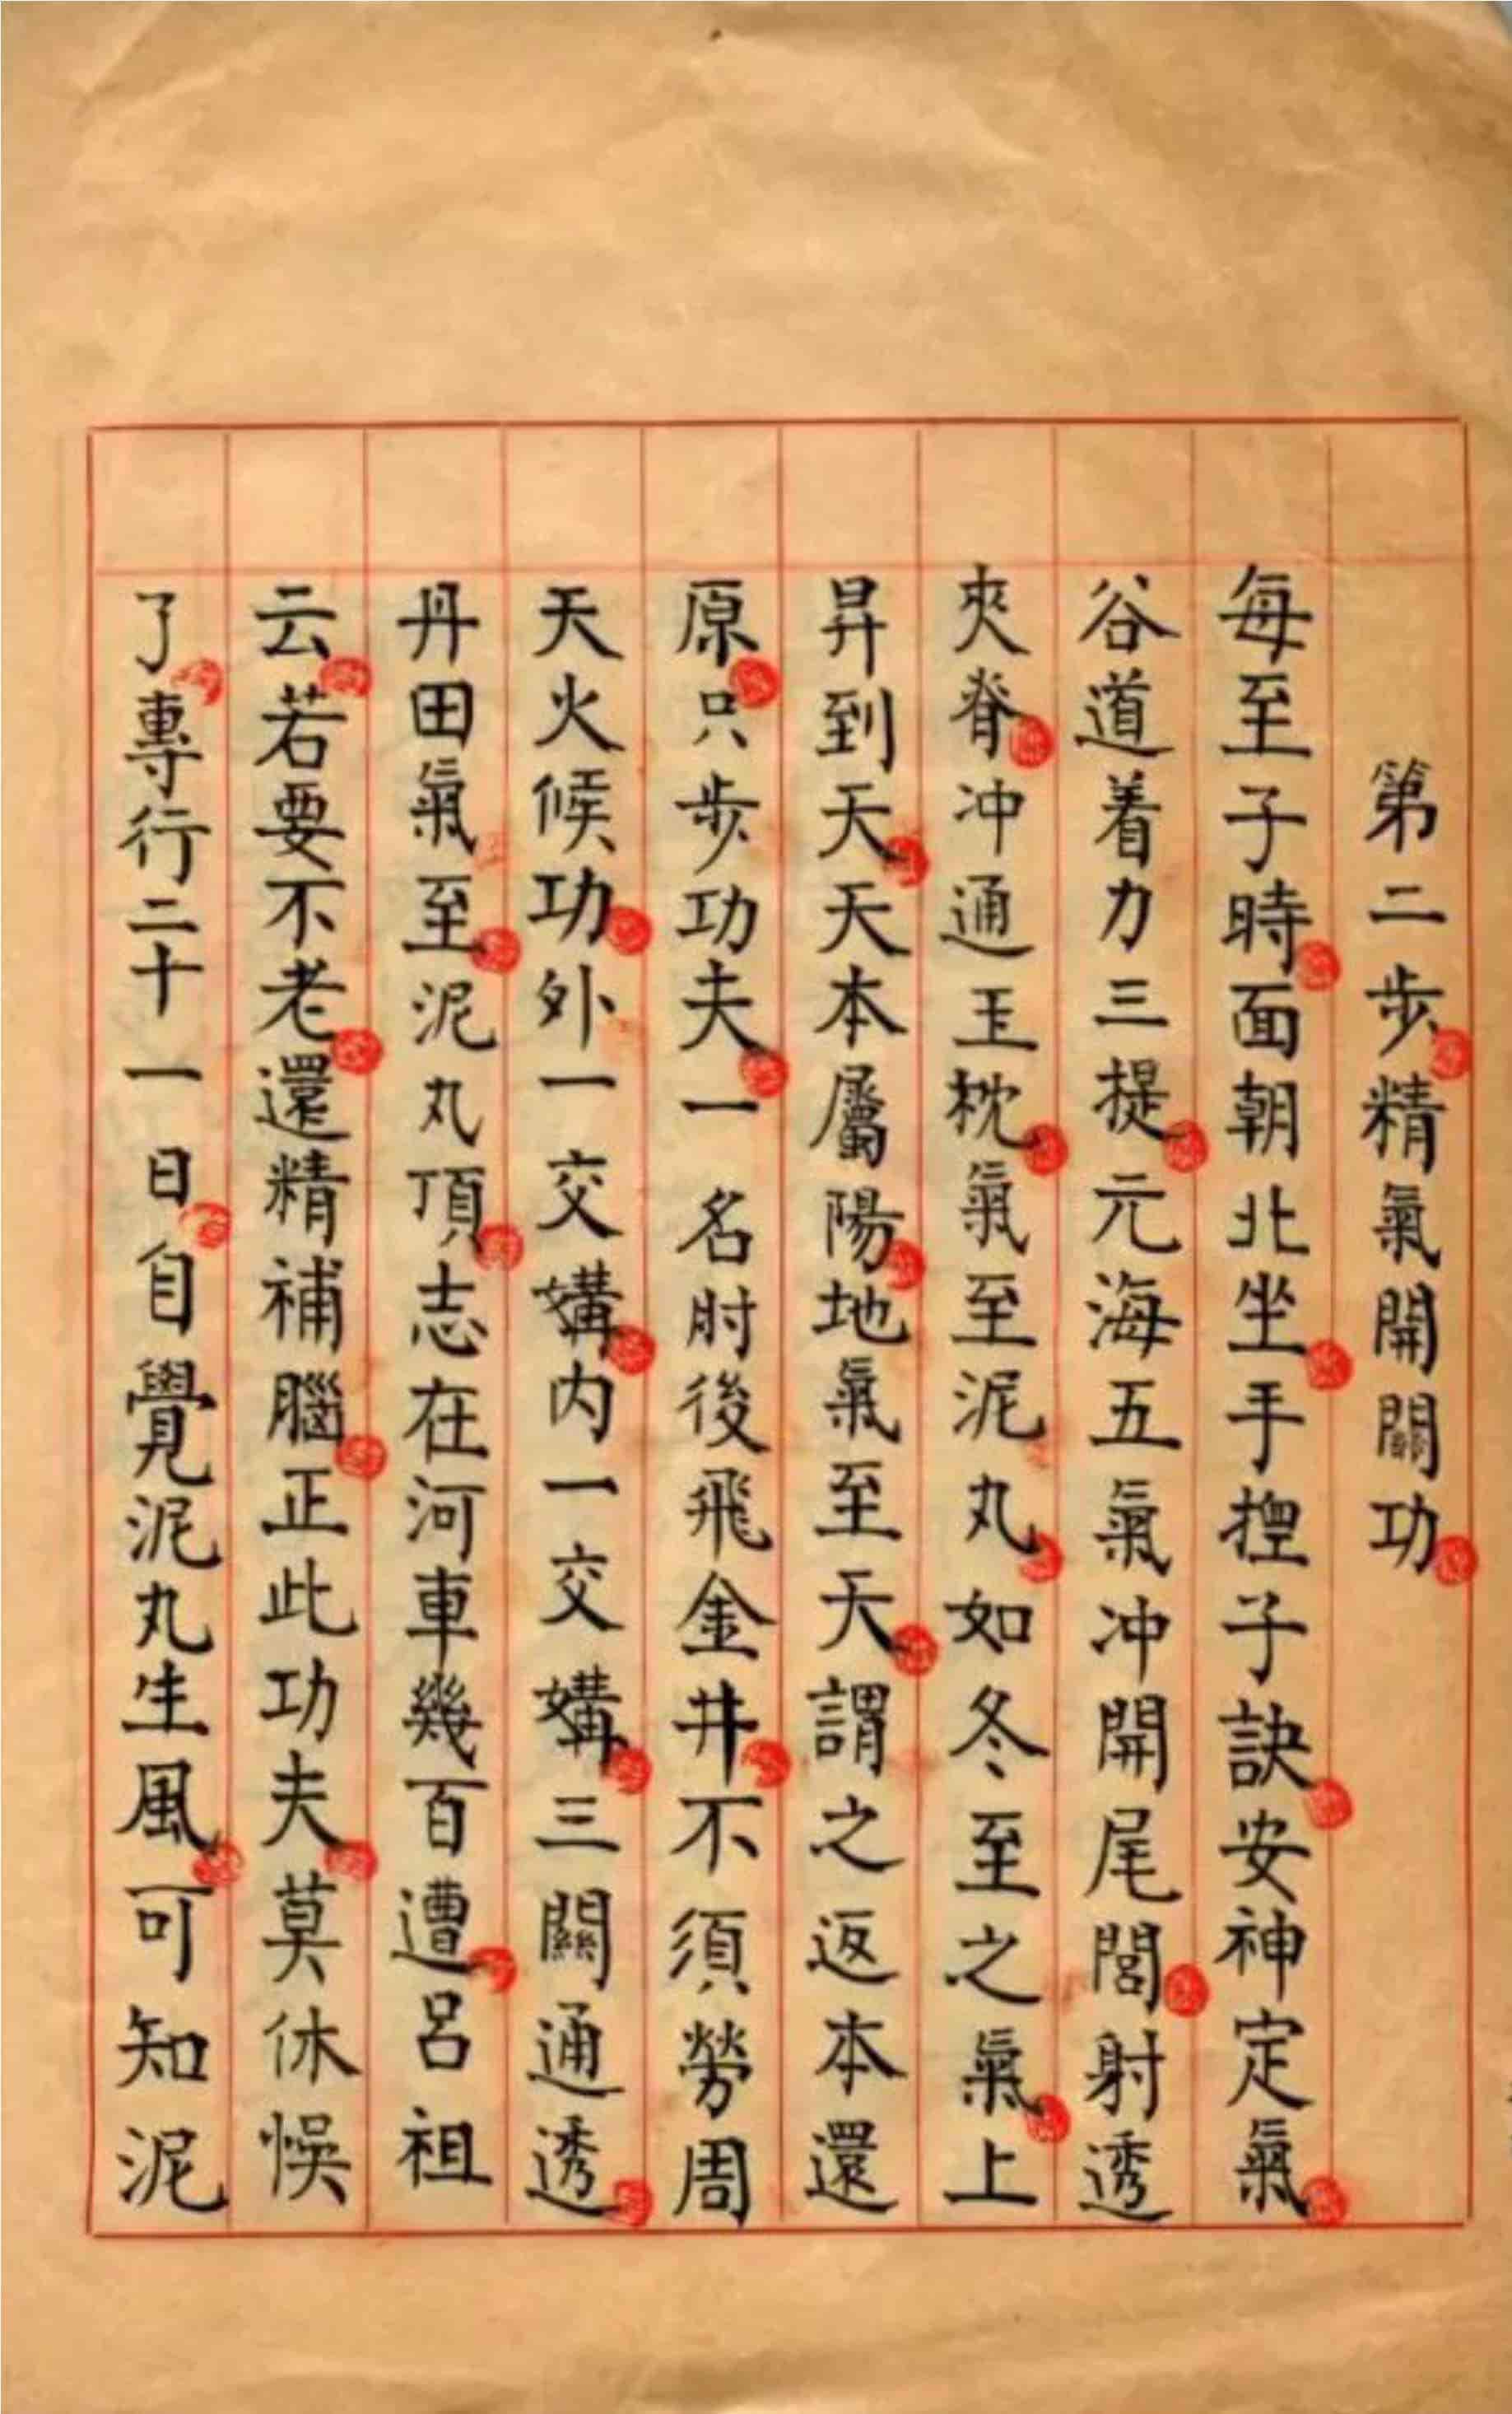 第二步精氣開關功
每至子時面朝北坐手揑子訣安神定氣
谷道着力三提元海五氣冲開尾閭射透
夾脊冲通玉枕氣至泥丸如冬至之氣上
昇到天天本屬陽地氣至天謂之返本還
原只步功夫一名肘後飛金井不須勞周
天火候功外一交媾内一交媾三關通透
丹田氣至泥丸頂志在河車幾百遭呂祖
云若要不老還精補腦正此功夫莫休悞
了專行二十一日自覺泥丸生風可知泥